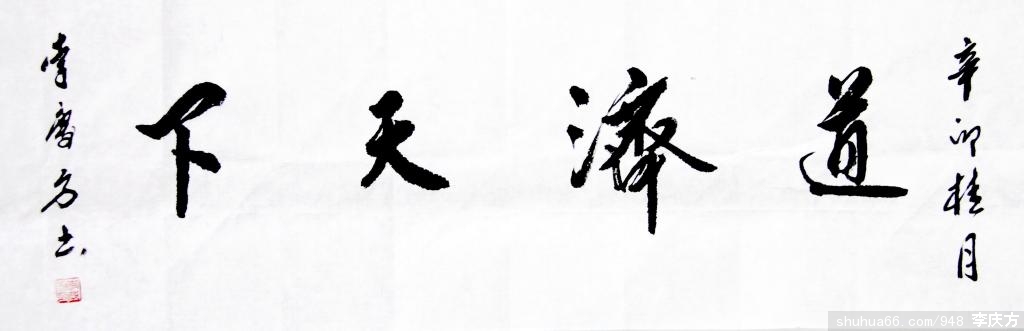 辛卯桂月
道濟天下
李慶方书
shuhua66.com/948 李庆方